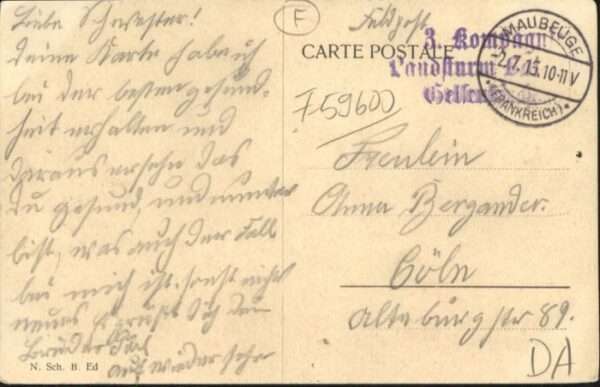 Liebe Schwester!
Deine Karte habe ich
bei der besten Gesund-
heit erhalten und
daraus ersehn das
Du gesund, und munter
bist, was auch der Fall
bei mich ist. sonst nichts
neues Es grüßt Dich dein
Bruder
auf wiedersehn
N. Sch. B. Ed
F
Feldpost
CARTE POSTALE
3. Kompagn
Landsturm
Gelsen
MAUBEUGE
-2.7.15.10-11V
(FRANKREICH)
F59600
Freulein
Anna Bergander.
Cöln
Alteburgstr 89.
DA